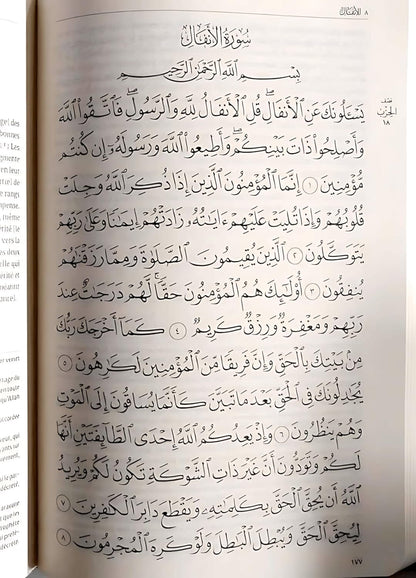 ٨ الأنفال
سُورَةُ الأَنفَالِ
بِسْمِ ٱللَّهِ ٱلرَّحْمَٰنِ ٱلرَّحِيمِ
يَسْـَٔلُونَكَ عَنِ ٱلْأَنفَالِۖ قُلِ ٱلْأَنفَالُ لِلَّهِ وَٱلرَّسُولِۖ فَٱتَّقُوا۟ ٱللَّهَ
وَأَصْلِحُوا۟ ذَاتَ بَيْنِكُمْۖ وَأَطِيعُوا۟ ٱللَّهَ وَرَسُولَهُۥٓ إِن كُنتُم
مُّؤْمِنِينَ ١ إِنَّمَا ٱلْمُؤْمِنُونَ ٱلَّذِينَ إِذَا ذُكِرَ ٱللَّهُ وَجِلَتْ
قُلُوبُهُمْ وَإِذَا تُلِيَتْ عَلَيْهِمْ ءَايَٰتُهُۥ زَادَتْهُمْ إِيمَٰنًا وَعَلَىٰ رَبِّهِمْ
يَتَوَكَّلُونَ ٢ ٱلَّذِينَ يُقِيمُونَ ٱلصَّلَوٰةَ وَمِمَّا رَزَقْنَٰهُمْ
يُنفِقُونَ ٣ أُو۟لَٰٓئِكَ هُمُ ٱلْمُؤْمِنُونَ حَقًّاۚ لَّهُمْ دَرَجَٰتٌ عِندَ
رَبِّهِمْ وَمَغْفِرَةٌ وَرِزْقٌ كَرِيمٌ ٤ كَمَآ أَخْرَجَكَ رَبُّكَ
مِنۢ بَيْتِكَ بِٱلْحَقِّ وَإِنَّ فَرِيقًا مِّنَ ٱلْمُؤْمِنِينَ لَكَٰرِهُونَ ٥
يُجَٰدِلُونَكَ فِى ٱلْحَقِّ بَعْدَ مَا تَبَيَّنَ كَأَنَّمَا يُسَاقُونَ إِلَى ٱلْمَوْتِ
وَهُمْ يَنظُرُونَ ٦ وَإِذْ يَعِدُكُمُ ٱللَّهُ إِحْدَى ٱلطَّآئِفَتَيْنِ أَنَّهَا
لَكُمْ وَتَوَدُّونَ أَنَّ غَيْرَ ذَاتِ ٱلشَّوْكَةِ تَكُونُ لَكُمْ وَيُرِيدُ
ٱللَّهُ أَن يُحِقَّ ٱلْحَقَّ بِكَلِمَٰتِهِۦ وَيَقْطَعَ دَابِرَ ٱلْكَٰفِرِينَ ٧
لِيُحِقَّ ٱلْحَقَّ وَيُبْطِلَ ٱلْبَٰطِلَ وَلَوْ كَرِهَ ٱلْمُجْرِمُونَ ٨
١٧٧
نصف
الحزب
١٨